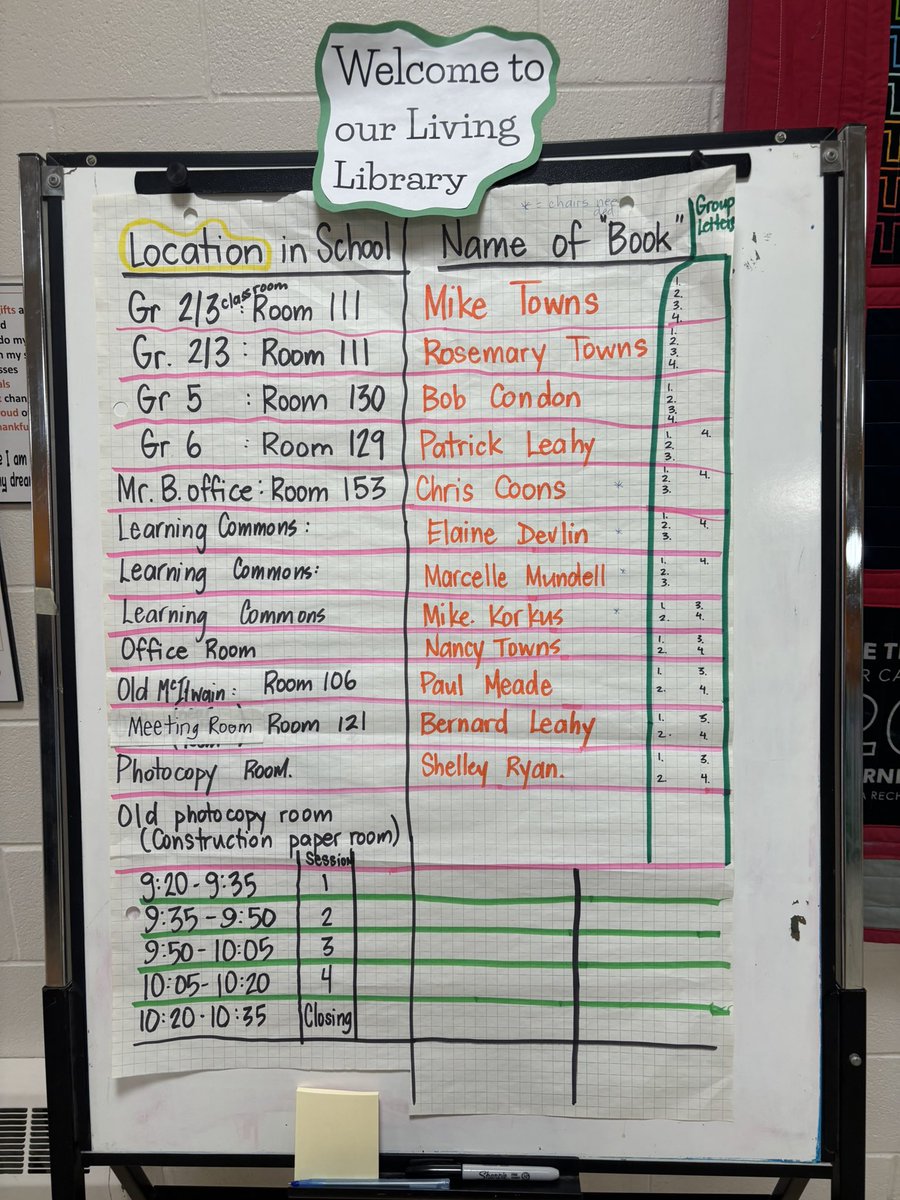 Welcome to
our Living
Library
* = chairs
Group
Letters
Location in School Name of "Book"
Gr 2/3 classroom : Room 111 Mike Towns 1. 2. 3. 4.
Gr. 2/3 : Room 111 Rosemary Towns 1. 2. 3. 4.
Gr 5 : Room 130 Bob Condon 1. 2. 3. 4.
Gr 6 : Room 129 Patrick Leahy 1. 2. 3. 4.
Mr. B. office : Room 153 Chris Coons * 1. 2. 3. 4.
Learning Commons : Elaine Devlin * 1. 2. 3. 4.
Learning Commons: Marcelle Mundell * 1. 2. 3. 4.
Learning Commons Mike. Korkus * 1. 2. 3. 4.
Office Room Nancy Towns 1. 2. 3. 4.
Old McIlwain : Room 106 Paul Meade 1. 2. 3. 4.
Meeting Room Room 121 Bernard Leahy 1. 2. 3. 4.
Photocopy Room. Shelley Ryan. 1. 2. 3. 4.
Old photocopy room
(Construction paper room)
Session
9:20 - 9:35 1
9:35 - 9:50 2
9:50 - 10:05 3
10:05 - 10:20 4
10:20 - 10:35 Closing
Sharpie